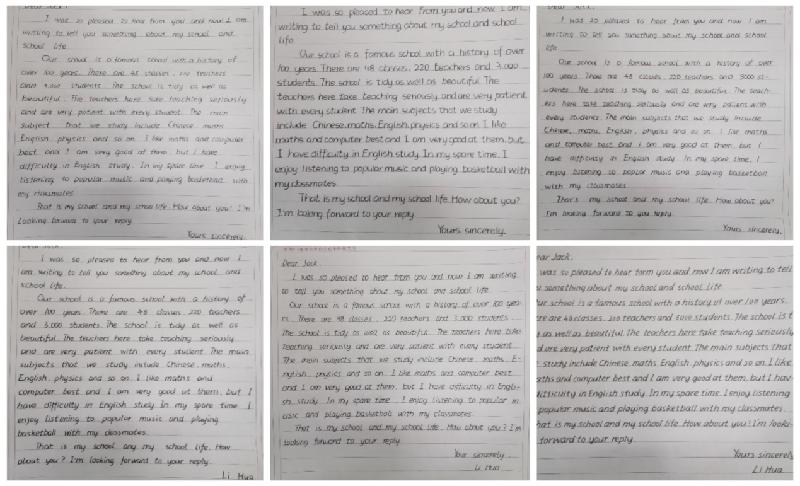 Dear Jack.
I was so pleased to hear from you and now I am
writing to tell you something about my school and
school life.
Our school is a famous school with a history of
over 100 years. There are 48 classes, 220 teachers
and 3.000 students. The school is tidy as well as
beautiful. The teachers here take teaching seriously
and are very patient with every student. The main
subject that we study include Chinese maths
English, physics and so on. I like maths and computer
best and I am very good at them but I have
difficulty in English study. In my spare time I enjoy
listening to popular music and playing basketball with
my classmates
That is my school and my school life. How about you? I'm
Looking forward to your reply.
Yours sincerely.
I was so pleased to hear from you and now I am
writing to tell you something about my school and school
life
Our school is a famous school with a history of over
100 years. There are 48 classes, 220 teachers and 3.000
students. The school is tidy as well as beautiful. The
teachers here take teaching seriously and are very patient
with every student The main subjects that we study
include Chinese, maths, English, physics and so on. I like
maths and computer best and I am very good at them, but
I have difficulty in English study. In my spare time, I
enjoy listening to popular music and playing basketball with
my classmates
That is my school and my school life. How about you?
I'm looking forward to your reply
Yours sincerely.
Dear Jack.
I was so pleased to hear from you and now I am
writing to tell you something about my school and school
life.
Our school is a famous school with a history of over
100 years There are 48 classes, 220 teachers and 3000 st-
udents The school is tidy as well as beautiful. The teach-
ers here take teaching seriously and are very patient with
every student. The main subjects that we study include
Chinese, maths, English, physics and so on. I like maths
and computer best and I am very good at them, but I
have difficulty in English study. In my spare time, I
enjoy listening to popular music and playing basketball
with my classmates
That's my school and my school life. How about you?
I'm looking forward to you reply.
Yours sincerely.
Dear Jack.
I was so pleased to hear from you and now I
am writing to tell you something about my school and
school life.
Our school is a famous school with a history of
over 100 years There are 48 classes 220 teachers
and 3.000 students. The school is tidy as well as
beautiful. The teachers here take teaching seriously
and are very patient with every student The main
subjects that we study include Chinese, maths,
English, physics and so on. I like maths and
computer best and I am very good at them, but I
have difficulty in English study In my spare time I
enjoy listening to popular music and playing
basketball with my classmates
That is my school any my school life. How
about you? I'm looking forward to your reply.
Li Hua
Dear Jack
I was so pleased to hear from you and now I am writing
to tell you something about my school and school life.
Our school is a famous school with a history of over 100 yea-
rs. There are 48 classes, 220 teachers and 3,000 students
The school is tidy as well as beautiful. The teachers here take
teaching seriously and are very patient with every student
The main subjects that we study include Chinese, maths, E-
nglish, physics and so on. I like maths and computer best
and I am very good at them, but I have difficulty in Engli-
sh study. In my spare time, I enjoy listening to popular m-
usic and playing basketball with my classmates.
That is my school and my school life. How about you? I'm
looking forward to your reply.
Your sincerely.
Li Hua
ar Jack.
was so pleased to hear form you and now I am writing to tell
u something about my school and school life
ur school is a famous school with a history of over 100 years.
re are 48 classes, 220 teachers and 3000 students. The school is t
y as well as beautiful. The teachers here take teaching seriously
d are very patient with every student. The main subjects That w
study include Chinese. maths English. physics and so on. I like
aths and computer best and I am very good at them, but I hav
difficulty in English study. In my spare time, I enjoy listening
popular music and playing basketball with my classmates.
hat is my school and my school life. How about you? I'm looki
forward to your reply.
Yours sincerely
Li Hua